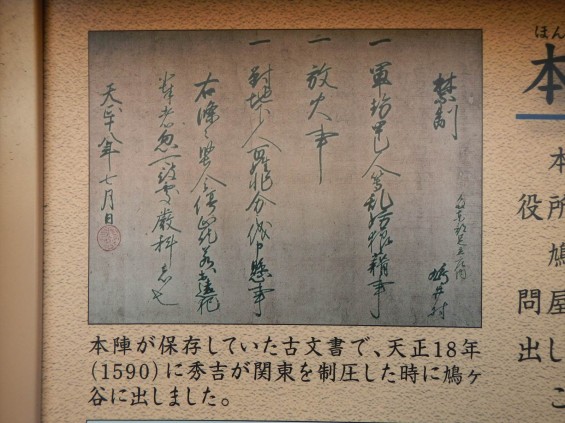 禁制
鳩井村
一 軍勢甲乙人等乱妨狼藉事
一 放火事
一 対地下人
非分儀申懸事
右條々堅令停止訖若違犯
輩者忽可被處厳科者也
天正十八年七月日
本陣が保存していた古文書で、天正18年
(1590)に秀吉が関東を制圧した時に鳩ヶ
谷に出しました。
ほん
本
本
役所
鳩
問屋
出し
こ